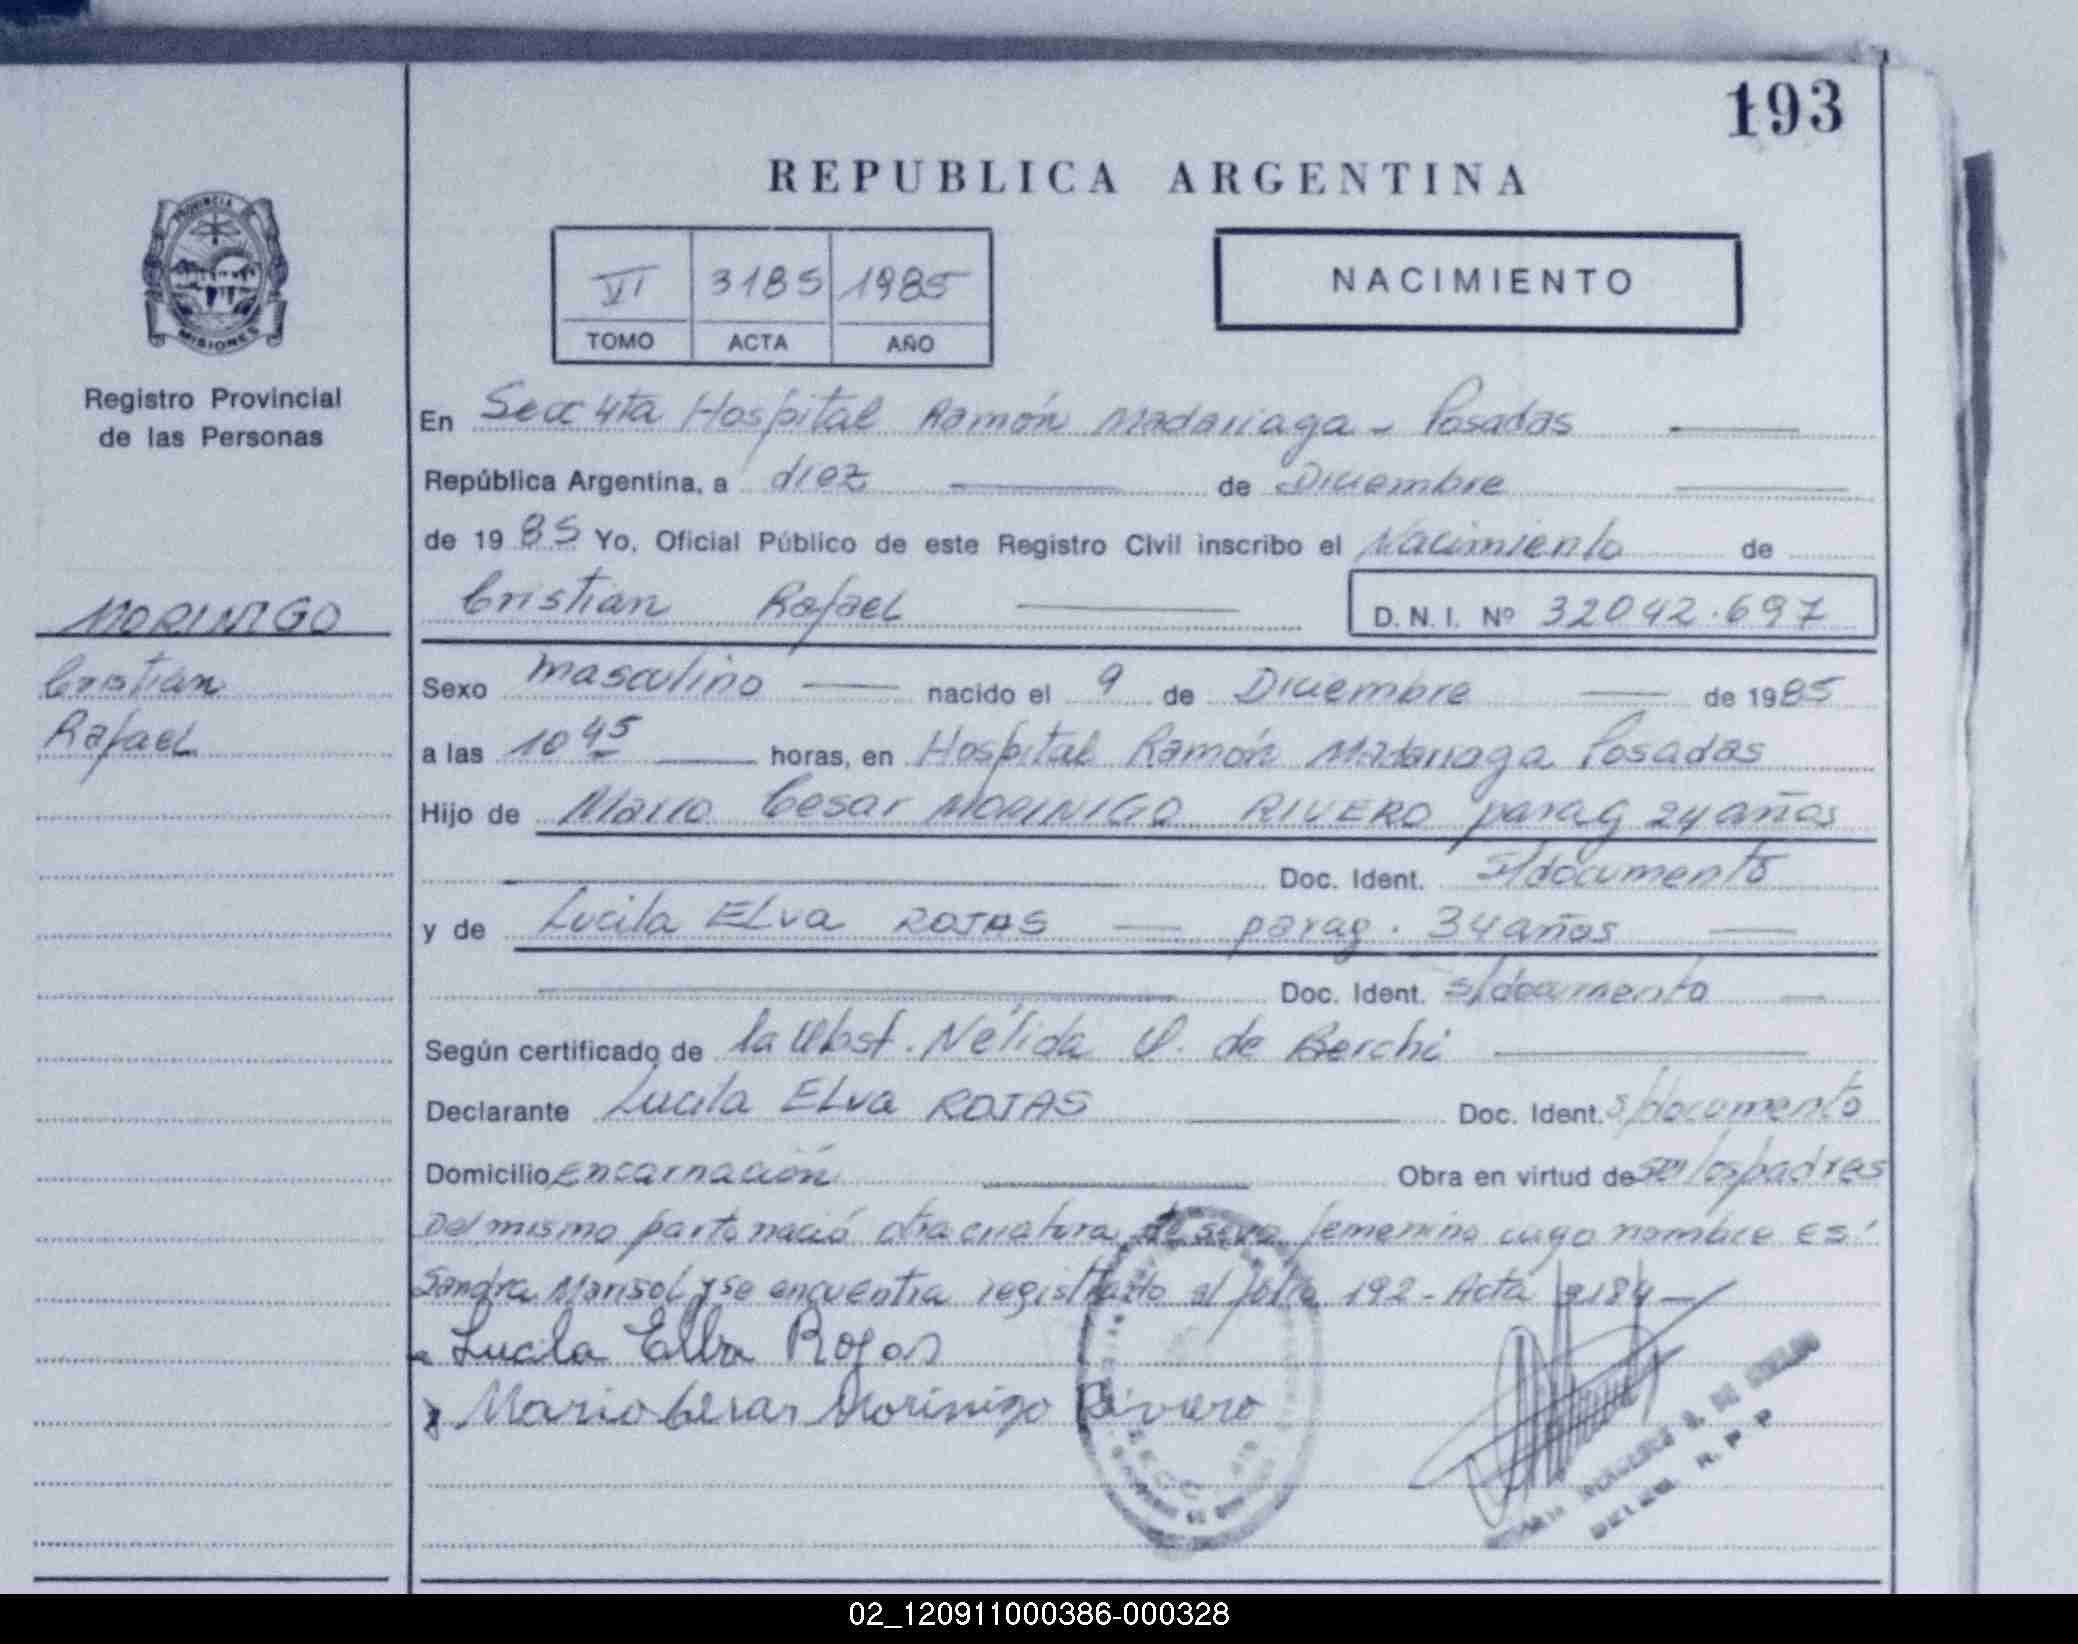 193
REPUBLICA ARGENTINA
PROVINCIA DE
MISIONES
VI 3185 1985
TOMO ACTA AÑO
NACIMIENTO
Registro Provincial
de las Personas
En Secc 4ta Hospital Ramón Madariaga - Posadas
República Argentina, a diez de Diciembre
de 1985 Yo, Oficial Público de este Registro Civil inscribo el Nacimiento de
Cristian Rafael D.N.I. Nº 32042.697
MORINIGO
Cristian
Rafael
Sexo masculino nacido el 9 de Diciembre de 1985
a las 10 45 horas, en Hospital Ramón Madariaga Posadas
Hijo de Mario Cesar MORINIGO RIVERO parag 24 años
Doc. Ident. s/documento
y de Lucila ELva ROJAS parag. 34 años
Doc. Ident. s/documento
Según certificado de la Obst. Nélida de Berchi
Declarante Lucila ELva ROJAS Doc. Ident. s/documento
Domicilio Encarnación Obra en virtud de ser los padres
Del mismo parto nació otra criatura de sexo femenino cuyo nombre es:
Sandra Marisol y se encuentra registrado al folio 192 - Acta 3184
Lucila Elba Rojas
Mario Cesar Morinigo Rivero
DELEG. R. P. P.
02_120911000386-000328